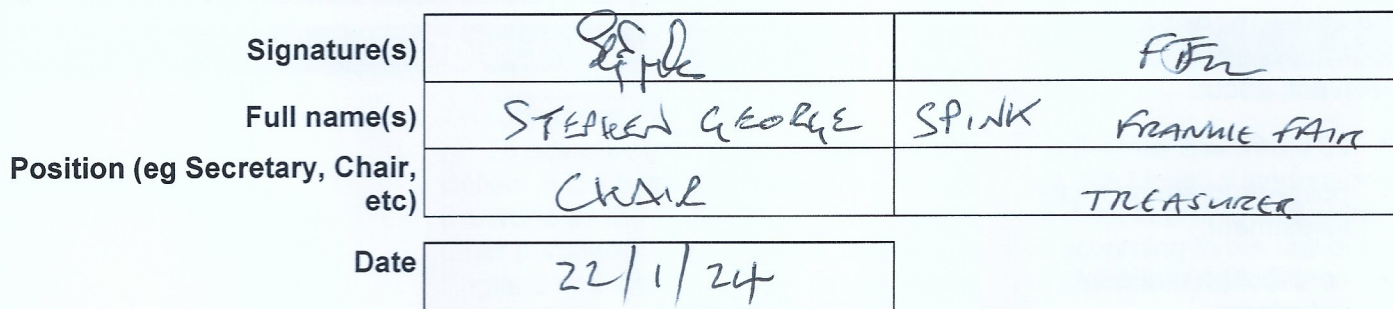 Signature(s)
Full name(s) STEPHEN GEORGE SPINK FRANKIE FAIR
Position (eg Secretary, Chair,
etc) CHAIR TREASURER
Date 22/1/24